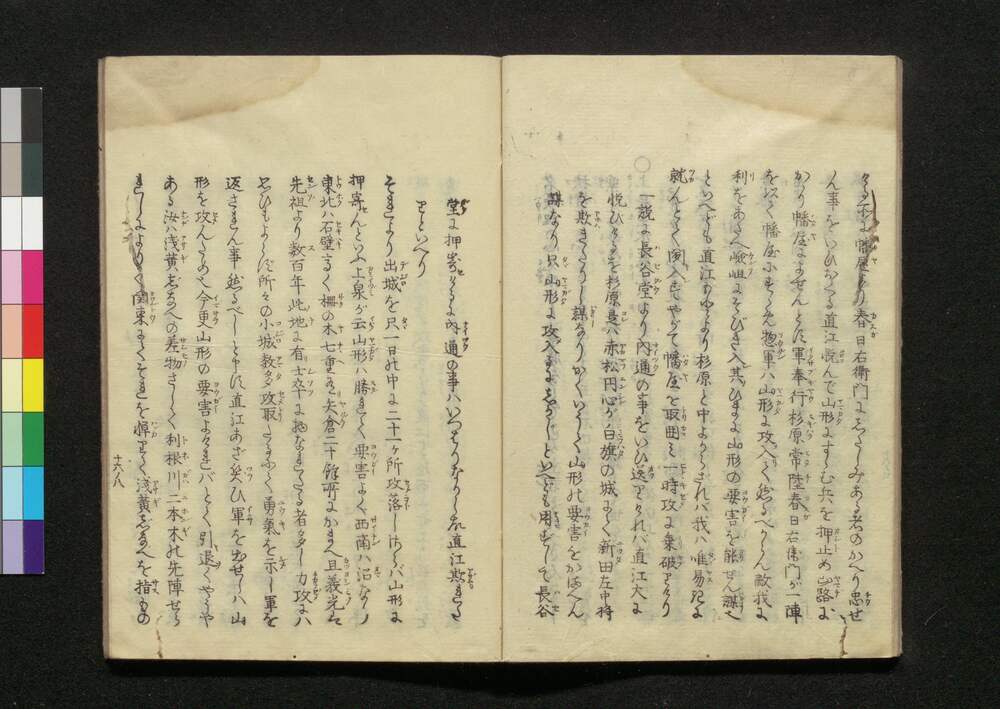 春日右衛門にしたしみある者のかへり忠せ
ん事をいひ直江悦んで山形にすゝむ兵を押止め山路に
かゝり幡屋によせんとす軍奉行杉原常陸春日右衛門が一陣
を以て幡屋にむかへ惣軍ハ山形に攻入て然るべからん敵我に
利をあたへ嶮岨にそびき入其ひまに山形の要害を能せん謀
といへども直江かねてより杉原と中よからされバ我ハ唯易きに
就んとて聞入ずやがて幡屋を取囲み一時攻に乗破りけり
○一説に長谷堂より内通の事をいひ送りければ直江大に
悦びけるを杉原是ハ赤松円心が白旗の城にて新田左中将
を欺きたりし謀なりかくいうて山形の要害をかまへん
謀なり只山形に攻入にしかじといへども用ずして長谷
堂に押寄けるに内通の事ハいつはりなりし故直江欺きたり
といへり
それより出城を只一日の中に二十一ヶ所攻落しければ山形に
押寄んといふ上泉が云山形ハ勝れて要害よく西南ハ沼なり
東北ハ石壁高く柵の木七重矢倉二十餘所にかまへ且義光は
先祖より数百年此地に有士卒に者多し力攻にハ
せひもよらず所々の小城数多攻取たるよく勇氣を示し軍を
返されん事然るべしと申す直江あざ笑ひ軍を出せしハ山
形を攻んため也今更山形の要害よければとて引退くやうや
ある汝ハ浅黄しなへの差物さして利根川二本木の先陣せら
れしよりして関東にてそれを憚りて浅黄しなへを指もの
十六ノ八